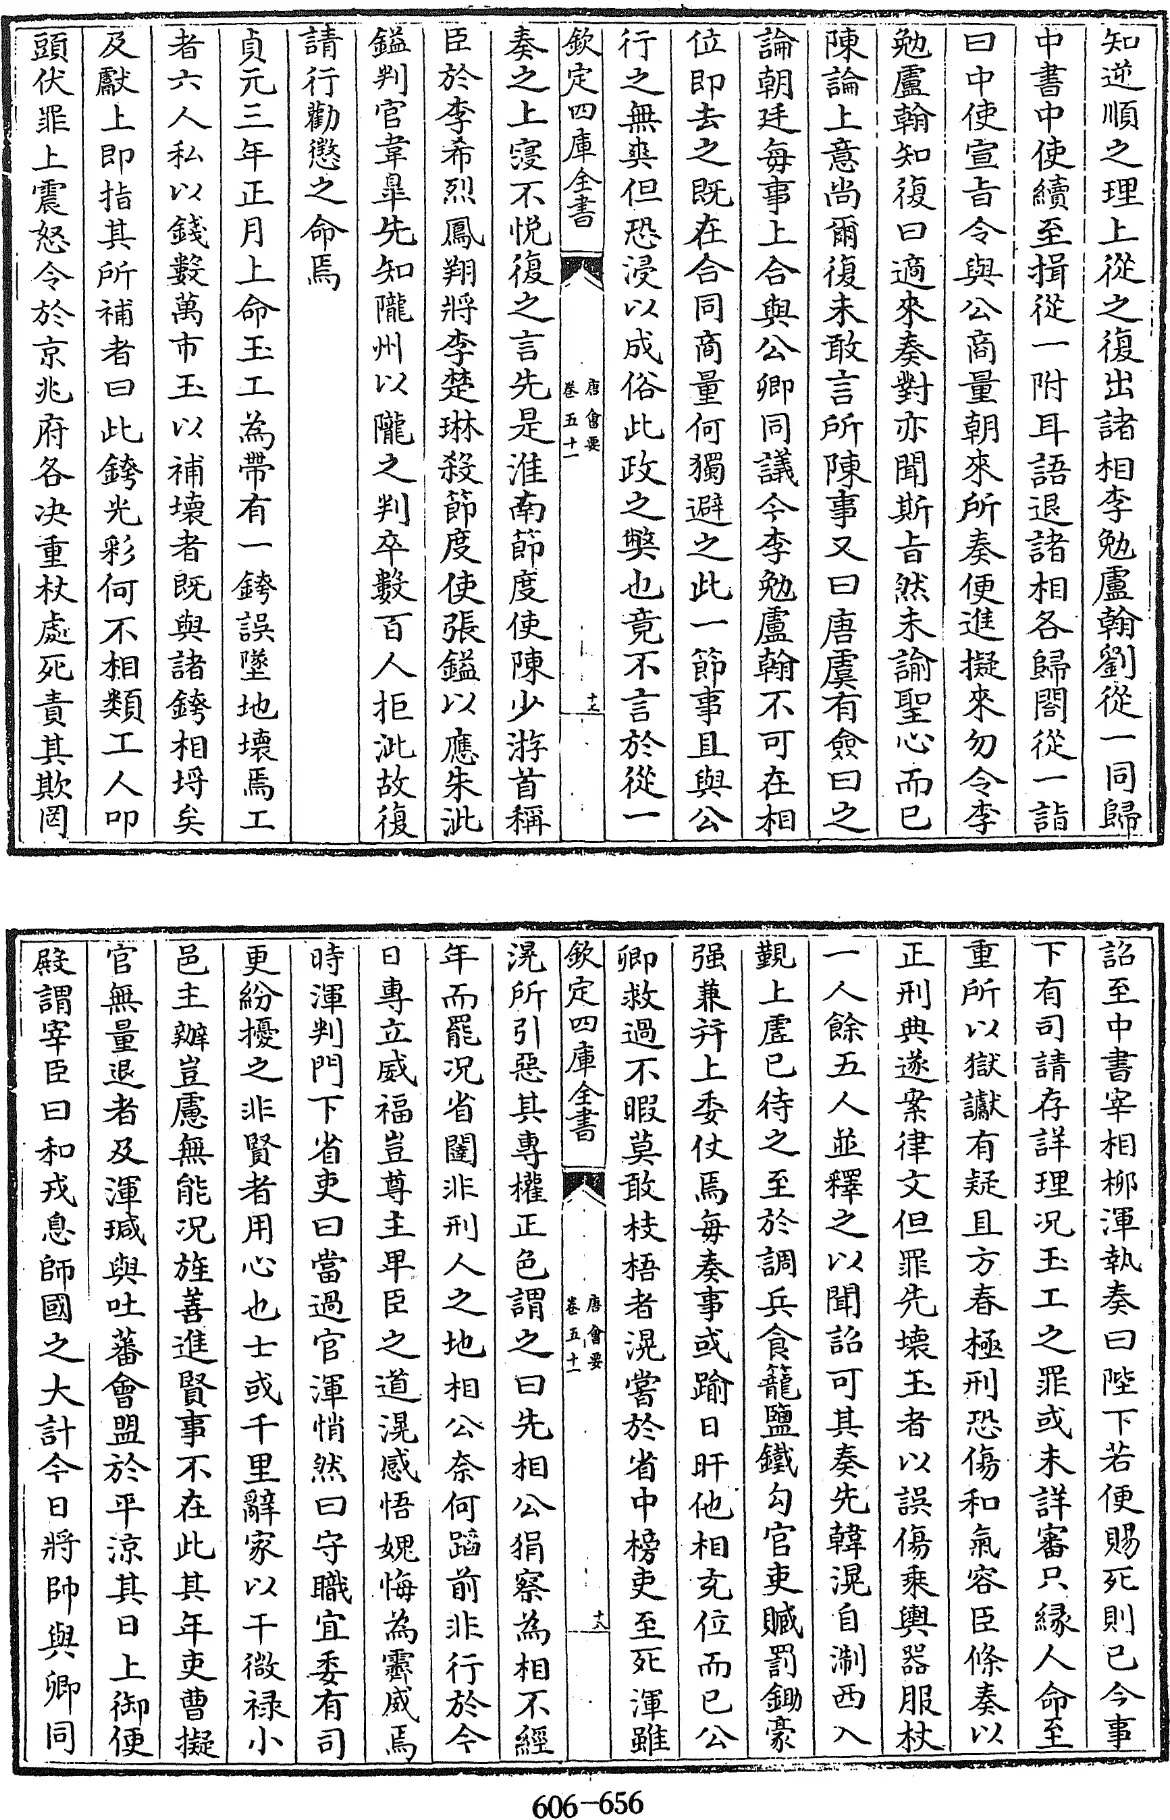 知逆順之理上從之復出諸相李勉盧翰劉從一同歸
中書中使續至揖從一附耳語退諸相各歸閤從一詣
曰中使宣旨令與公商量朝來所奏便進擬來勿令李
勉盧翰知復曰適來奏對亦聞斯旨然未諭聖心而已
陳論上意尚爾復未敢言所陳事又曰唐虞有僉曰之
論朝廷每事上合與公卿同議今李勉盧翰不可在相
位即去之既在合同商量何獨避之此一節事且與公
行之無爽但恐浸以成俗此政之弊也竟不言於從一
欽定四庫全書
唐會要
卷五十一
十七
奏之上寖不悅復之言先是淮南節度使陳少游首稱
臣於李希烈鳳翔將李楚琳殺節度使張鎰以應朱泚
鎰判官韋臯先知隴州以隴之判卒數百人拒泚故復
請行勸懲之命焉
貞元三年正月上命玉工為帶有一銙誤墜地壞焉工
者六人私以錢數萬市玉以補壞者既與諸銙相埒矣
及獻上即指其所補者曰此銙光彩何不相類工人叩
頭伏罪上震怒令於京兆府各決重杖處死責其欺罔
詔至中書宰相柳渾執奏曰陛下若便賜死則已今事
下有司請存詳理況玉工之罪或未詳審只緣人命至
重所以獄讞有疑且方春極刑恐傷和氣容臣條奏以
正刑典遂案律文但罪先壞玉者以誤傷乘輿器服杖
一人餘五人並釋之以聞詔可其奏先韓滉自淛西入
覲上虛已待之至於調兵食籠鹽鐵勾官吏贓罰鋤豪
强兼并上委仗焉每奏事或踰日旰他相充位而已公
卿救過不暇莫敢枝梧者滉嘗於省中榜吏至死渾雖
欽定四庫全書
唐會要
卷五十一
十八
滉所引惡其專權正色謂之曰先相公狷察為相不經
年而罷況省闥非刑人之地相公奈何蹈前非行於今
日專立威福豈尊主卑臣之道滉感悟媿悔為霽威焉
時渾判門下省吏曰當過官渾悄然曰守職宜委有司
更紛擾之非賢者用心也士或千里辭家以干微禄小
邑主辦豈慮無能況旌善進賢事不在此其年吏曹擬
官無量退者及渾瑊與吐蕃會盟於平涼其日上御便
殿謂宰臣曰和戎息師國之大計今日將帥與卿同
606-656